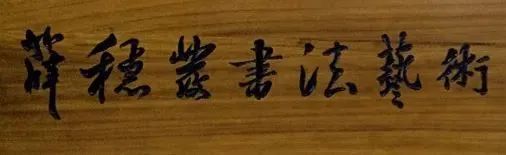 薛穩叢書法藝術